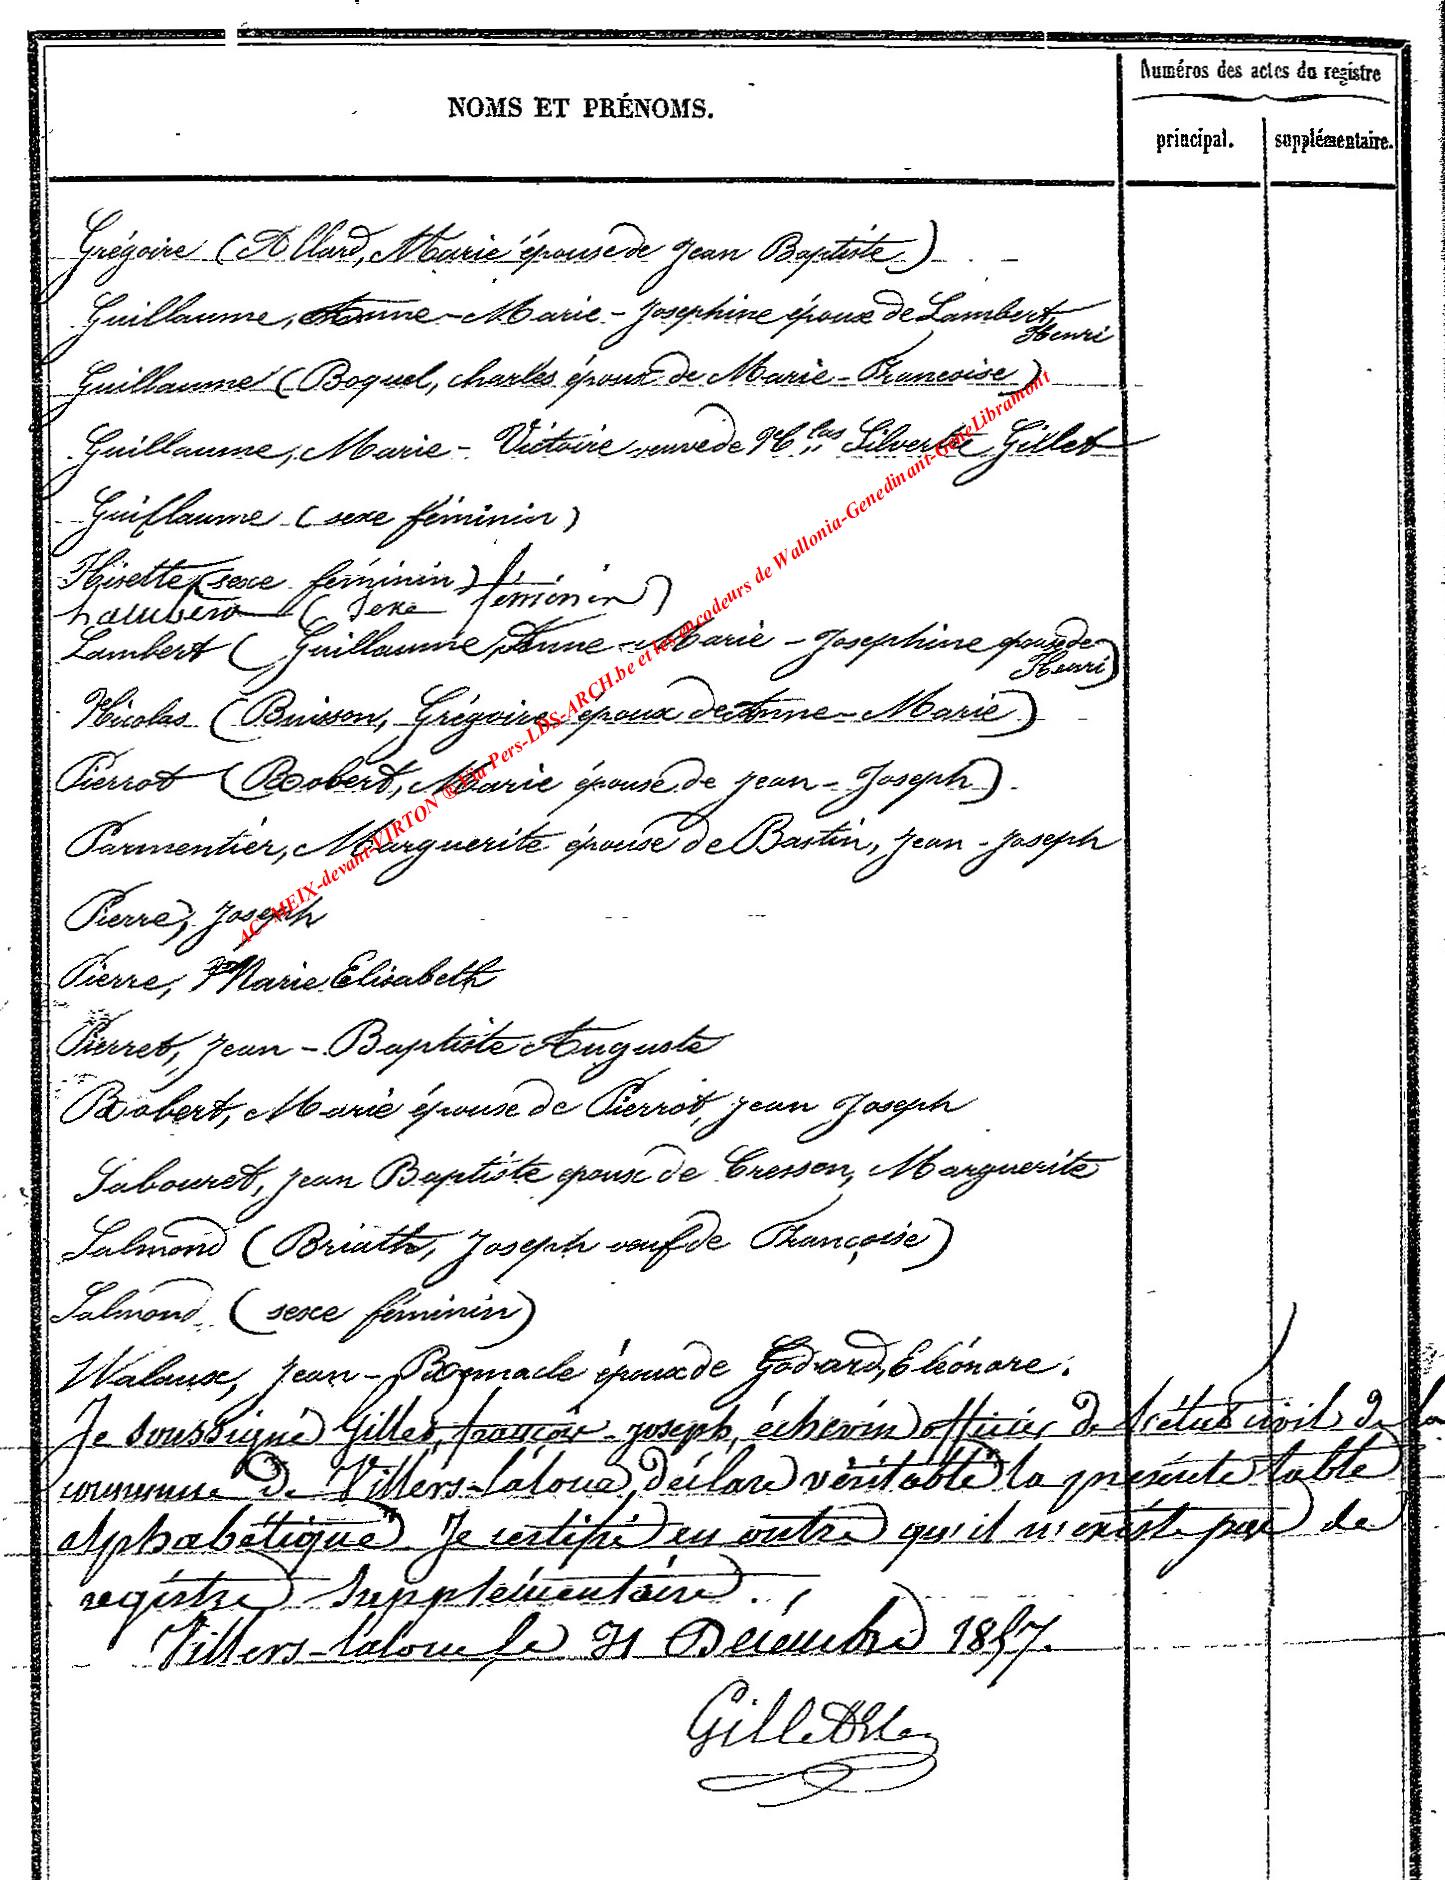 Numéros des actes du registre
NOMS ET PRÉNOMS.
principal. supplémentaire.
Grégoire (Allard, Marie épouse de Jean Baptiste)
Guillaume, Anne-Marie-Josephine épouse de Lambert,
Henri
Guillaume (Boquel, charles époux de Marie-Francoise)
Guillaume, Marie-Victoire veuve de N.las Silvestre Gillet
Guillaume (sexe féminin)
Hisette (sexe féminin)
Lambert (sexe féminin)
Lambert (Guillaume Anne-Marie-Josephine epouse de
Henri)
Nicolas (Buisson, Grégoire époux de Anne-Marie)
Pierrot (Robert, Marie épouse de Jean-Joseph).
Parmentier, Marguerite épouse de Bastin, Jean-Joseph
Pierre, Joseph
Pierre, Marie Elisabeth
Pierret, Jean-Baptiste Auguste
Robert, Marie épouse de Pierrot, Jean Joseph
Sabouret, Jean Baptiste epoux de Cresson, Marguerite
Salmond (Briath, Joseph veuf de Françoise)
Salmond (sexe féminin)
Walaux, Jean-Remacle époux de Godard, Eléonore.
Je soussigné Gillet, françois-joseph, échevin officier de l'état civil de la
commune de Villers-laloue, déclare véritable la présente table
alphabétique. Je certifie en outre qu'il n'existe pas de
registre supplémentaire.
Villers-laloue le 31 Décembre 1857.
Gillet
AC-MEIX-devant-VIRTON ® Via Pers-LDS-ARCH.be et les encodeurs de Wallonia-Genedinant-GeneLibramont